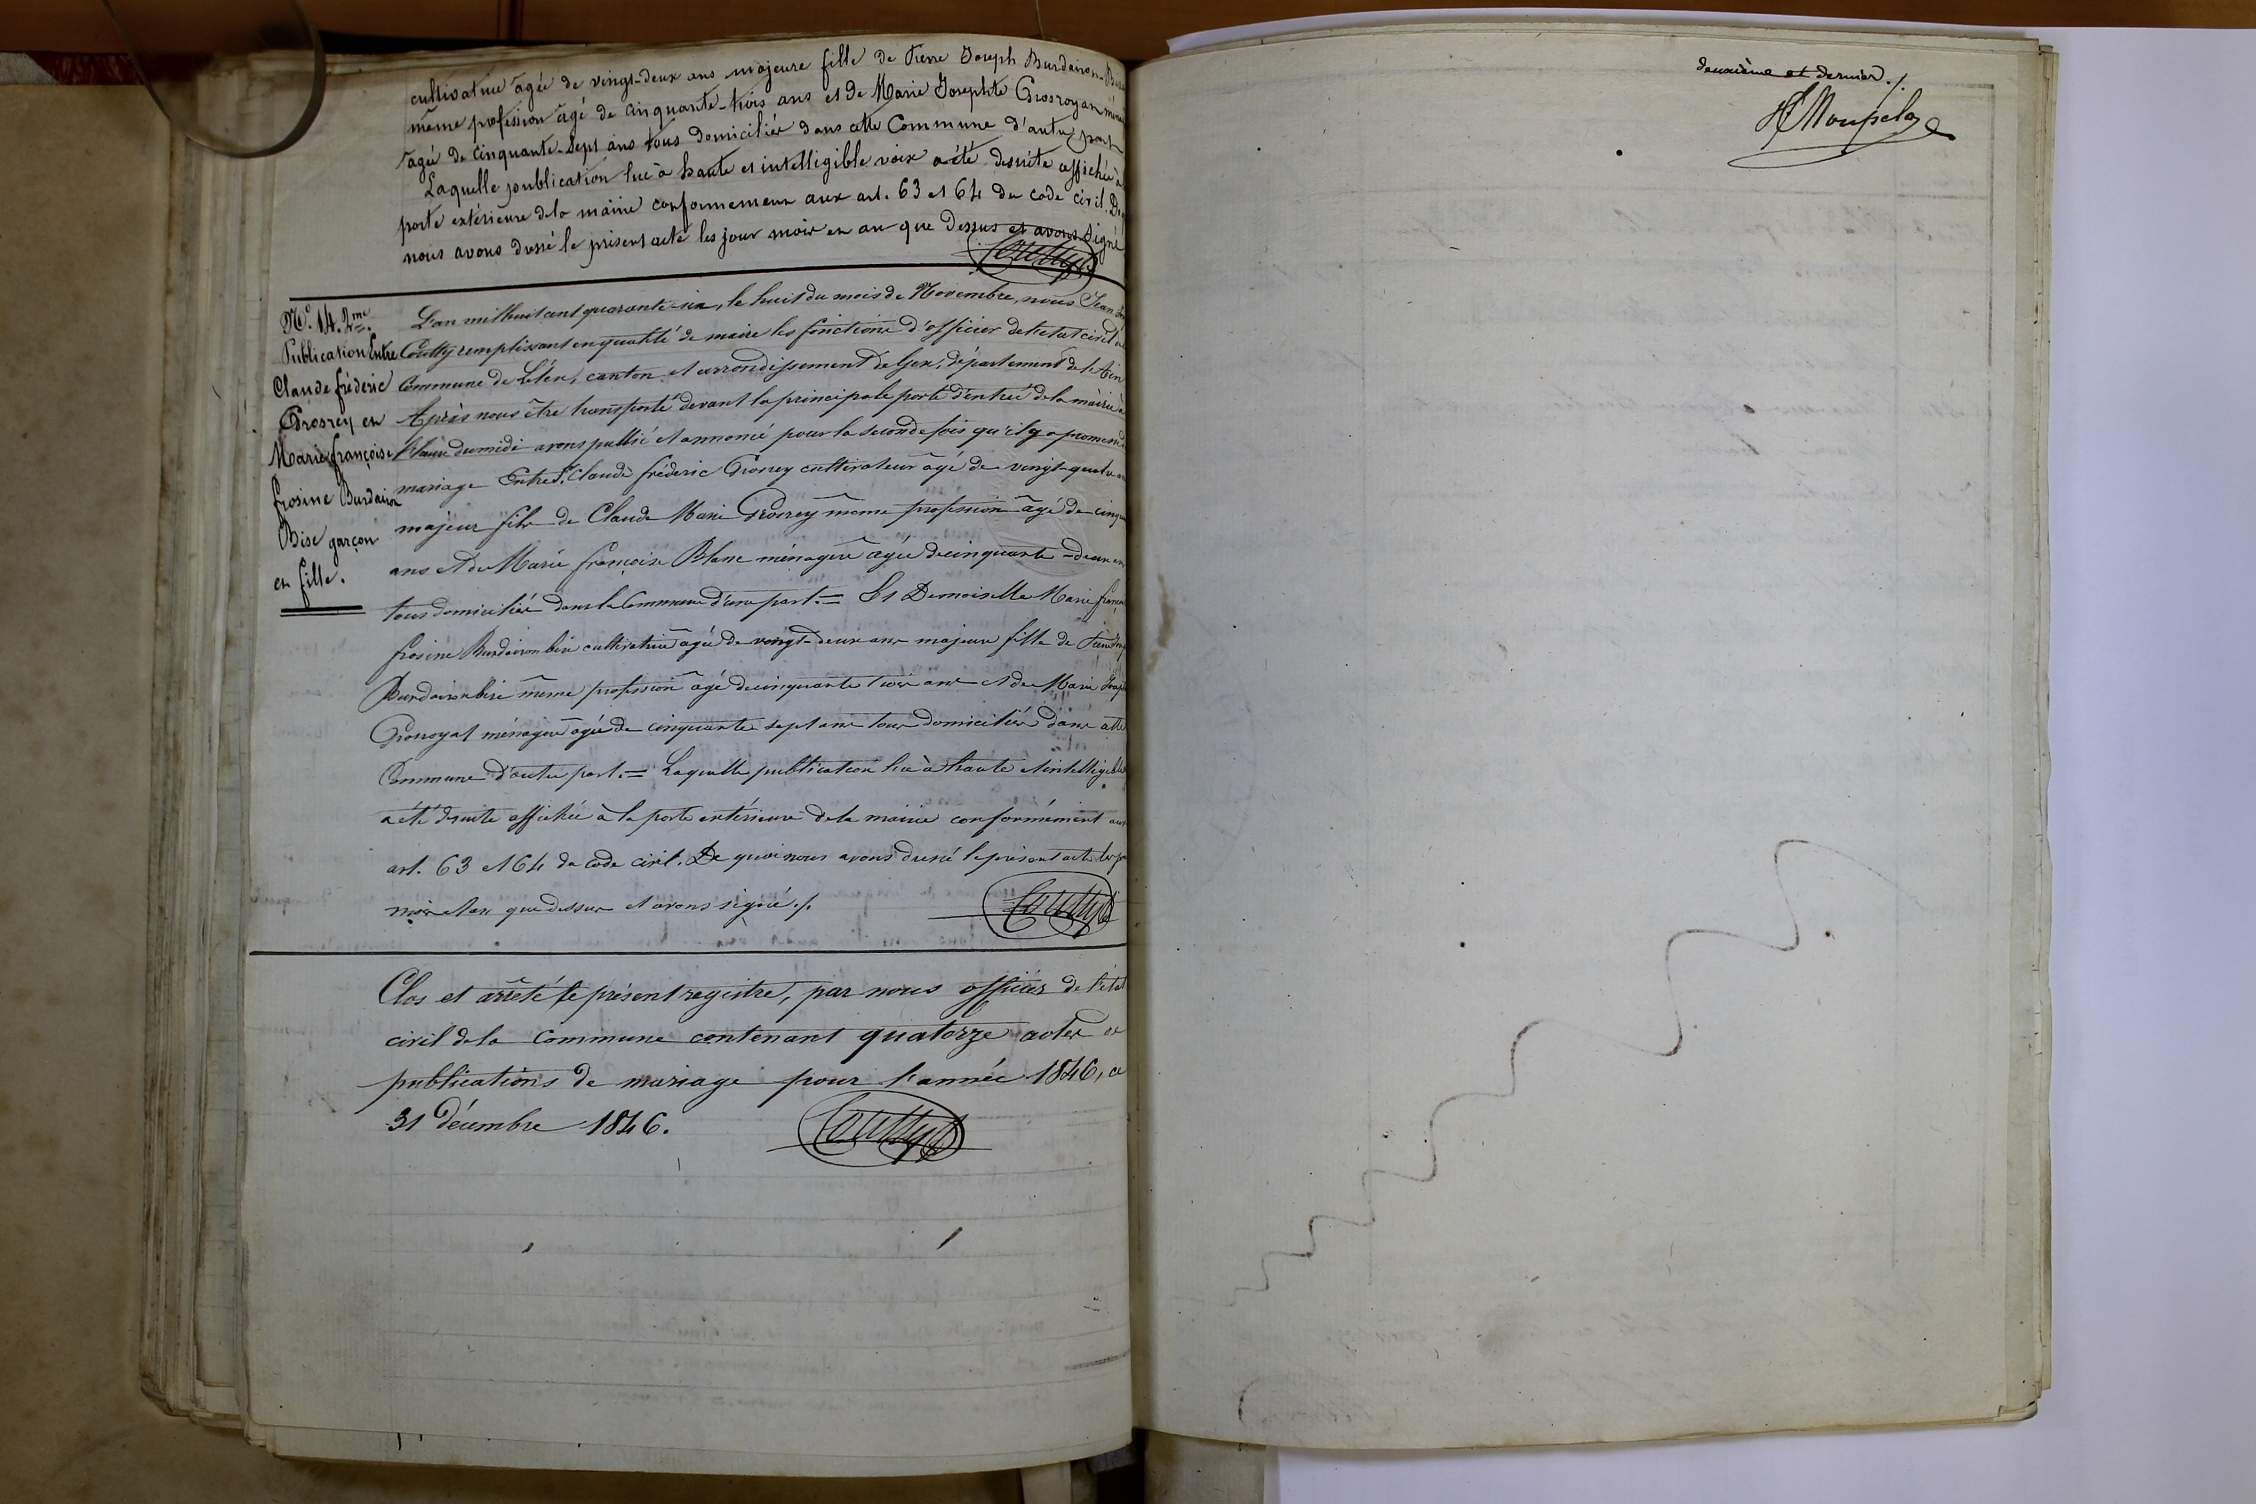 cultivatrice agée de vingt-deux ans majeure fille de Pierre Joseph Burdairon-Bise
même profession agé de cinquante-trois ans et de Marie Josephte Grosroyat
agée de cinquante-sept ans tous domiciliés dans cette Commune d'autre part
Laquelle publication lue à haute et intelligible voix a été desuite affichée à
porte extérieure de la mairie conformement aux art. 63 et 64 du code civil. De
nous avons dressé le présent acte les jour mois et an que dessus et avons signé
Coutty
N.º 14. 2me.
Publication Entre
Claude fréderic
Grosrey et
Marie françoise
frosine Burdairon
Bise garçon
et fille.
L'an mil huit cent quarante-six, le huit du mois de Novembre, nous Jean
Coutty remplissant en qualité de maire les fonctions d'officier de l'état civil
Commune de Lélex, canton et arrondissement de Gex, département de l'Ain
Après nous être transporté devant la principale porte d'entrée de la mairie à
l'heure de midi avons publié et annoncé pour la seconde fois qu'il y a promesse de
mariage Entre S. Claude fréderic Grosrey cultivateur âgé de vingt-quatre
majeur fils de Claude Marie Grosrey même profession âgé de
ans et de Marie françoise Blanc ménagère âgée de cinquante-deux ans
tous domiciliés dans la Commune d'une part. = Et Demoiselle Marie
frosine Burdairon bise cultivatrice âgée de vingt-deux ans majeure fille de Pierre
Burdairon bise même profession âgé de cinquante trois ans et de Marie
Grosroyat ménagère âgée de cinquante sept ans tous domiciliés dans cette
Commune d'autre part. = Laquelle publication lue à haute et intelligible
a été desuite affichée à la porte extérieure de la mairie conformément aux
art. 63 et 64 du code civil. De quoi nous avons dressé le présent acte les
mois et an que dessus et avons signé./.
Coutty
Clos et arrêté le présent registre, par nous officier de l'état
civil de la Commune contenant quatorze actes de
publications de mariage pour l'année 1846, ce
31 décembre 1846.
Coutty
deuxième et dernier./.